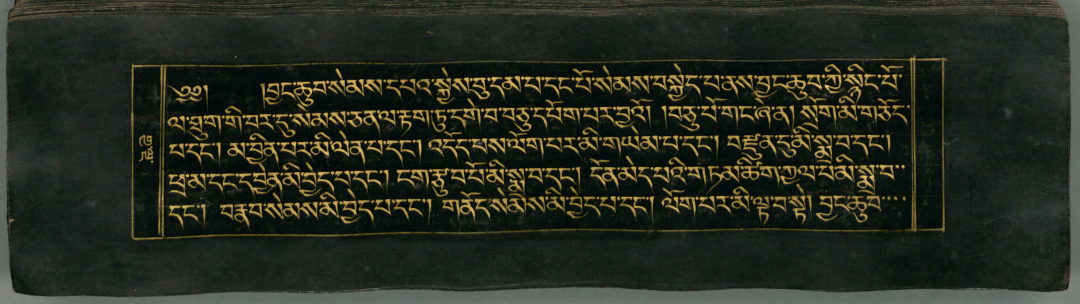 ༄༅། །བྱང་ཆུབ་སེམས་དཔའ་སྐྱེས་བུ་དམ་པ་དང་པོ་སེམས་བསྐྱེད་པ་ནས་བྱང་ཆུབ་ཀྱི་སྙིང་པོ་
ལ་ཐུག་གི་བར་དུ་སེམས་ཅན་ལ་རྟག་ཏུ་དགེ་བ་བཅུ་དཔོག་པར་བྱའོ། །བཅུ་པོ་གང་ཞེ་ན། སྲོག་མི་གཅོད་
པ་དང་། མ་བྱིན་པར་མི་ལེན་པ་དང་། འདོད་པས་ལོག་པར་མི་གཡེམ་པ་དང་། བརྫུན་དུ་མི་སྨྲ་བ་དང་།
ཕྲ་མ་དང་དབྱེན་མི་བྱེད་པ་དང་། ངག་རྩུབ་པོ་མི་སྨྲ་བ་དང་། དོན་མེད་པའི་གཏམ་ཚིག་ཀྱལ་པ་མི་སྨྲ་བ་
དང་། བརྣབ་སེམས་མི་བྱེད་པ་དང་། གནོད་སེམས་མི་བྱེད་པ་དང་། ལོག་པར་མི་ལྟ་བ་སྟེ། བྱང་ཆུབ་